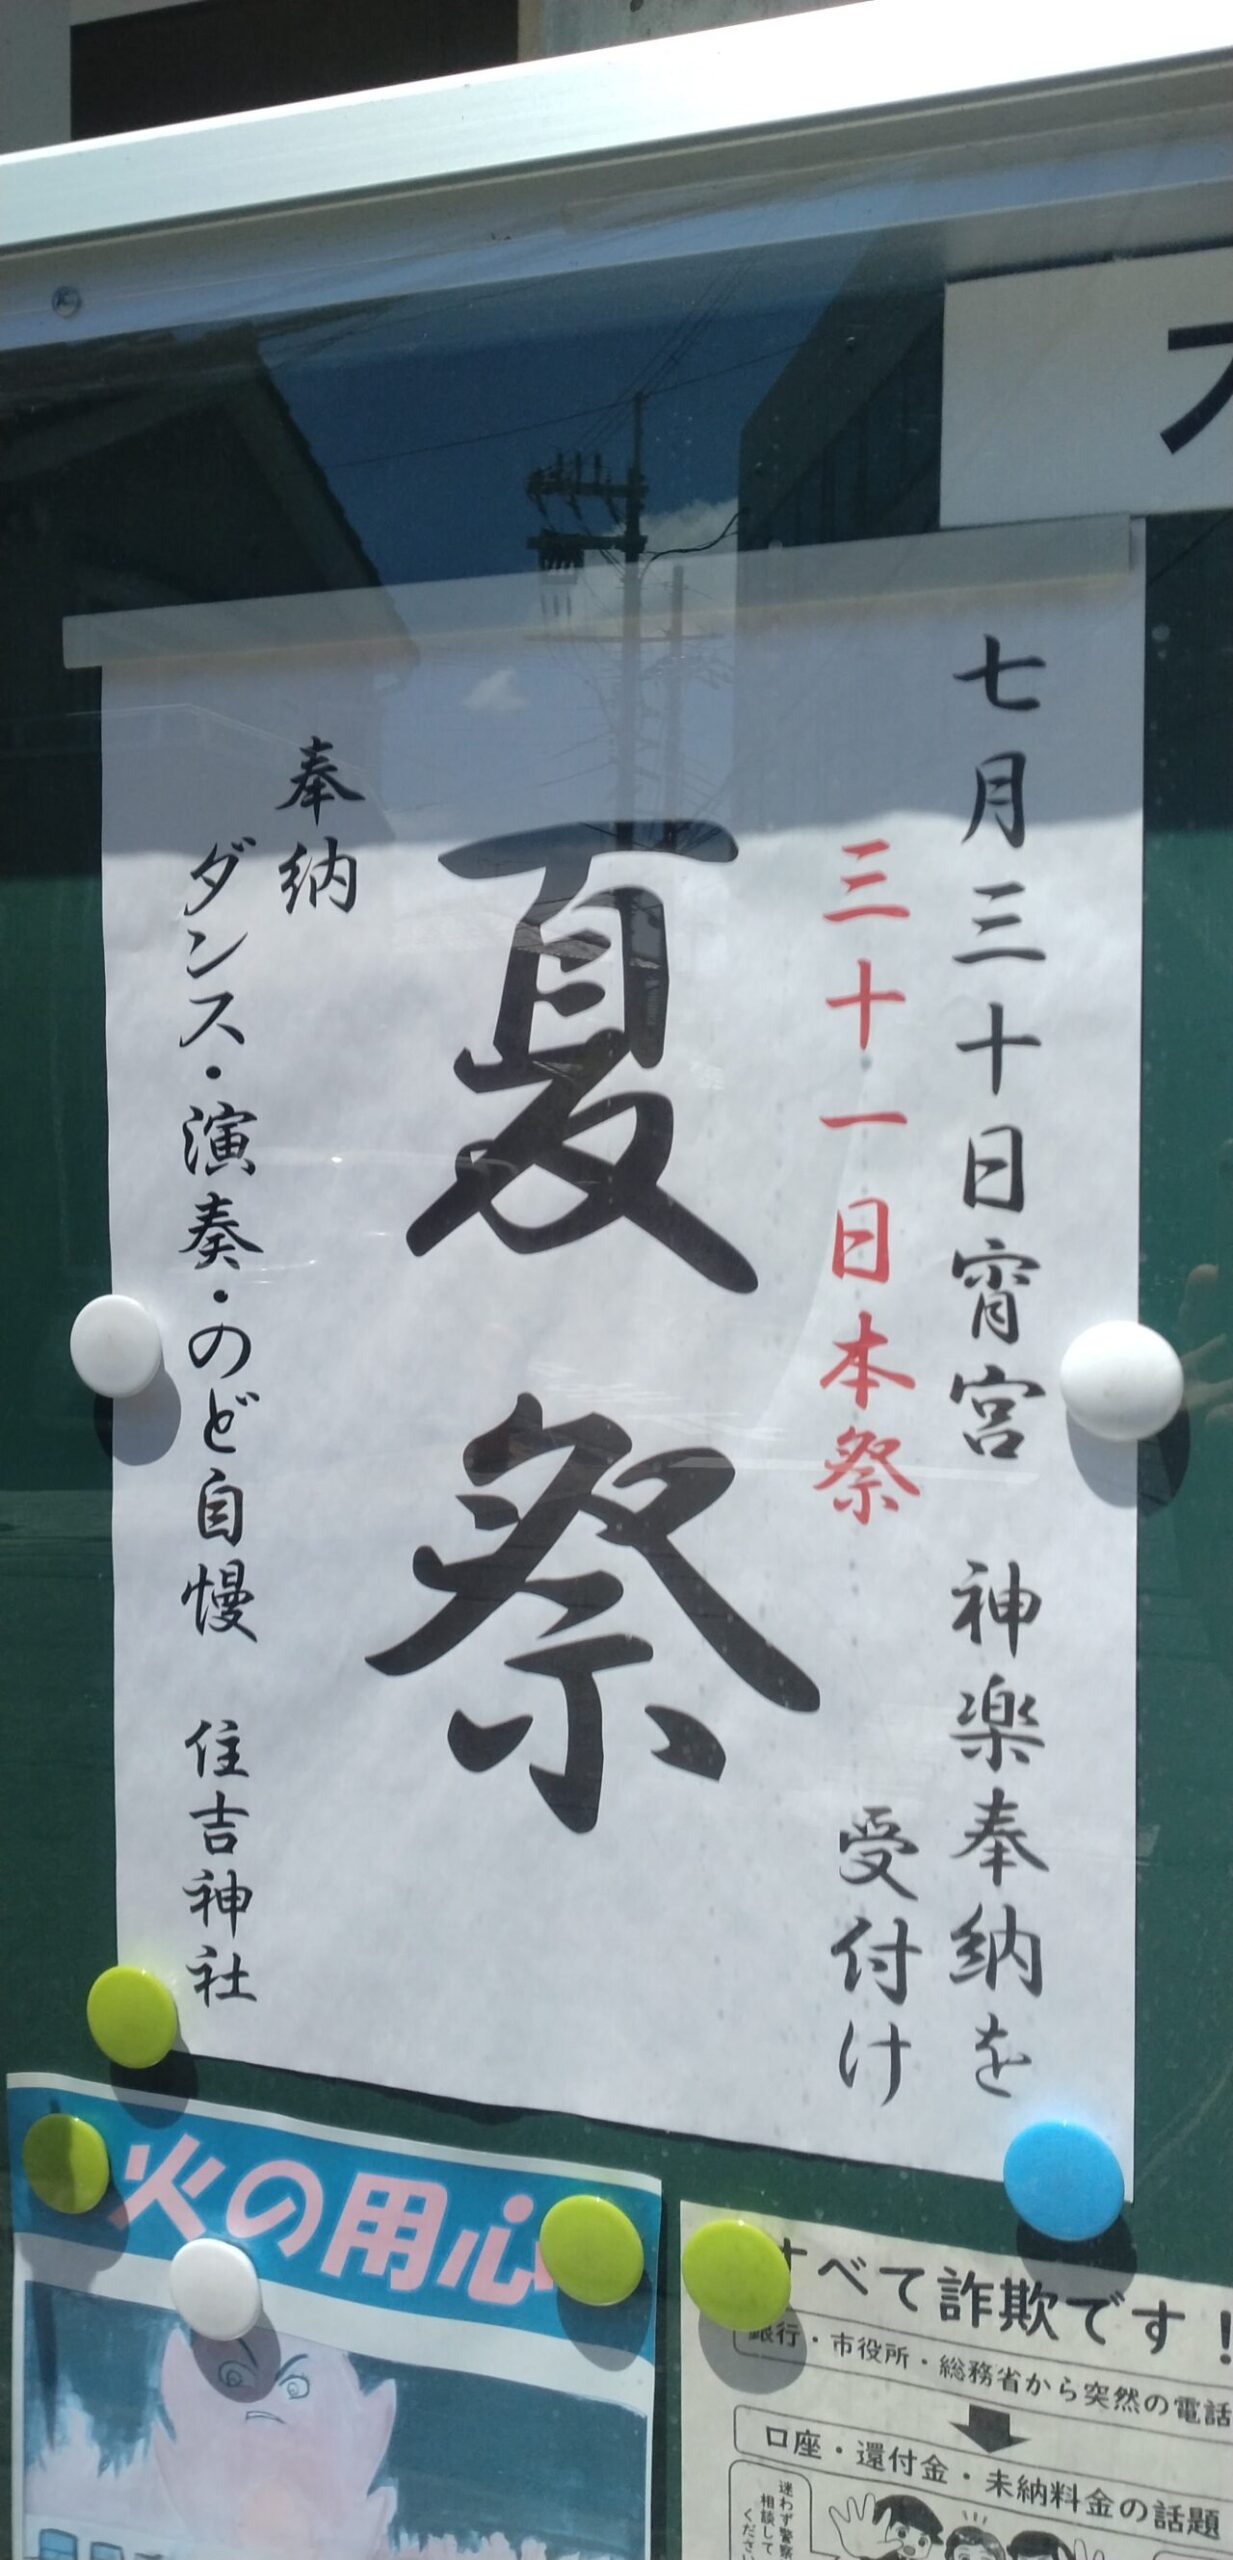 七月三十日宵宮　神楽奉納を
三十一日本祭　受付け
夏祭
奉納
ダンス・演奏・のど自慢　住吉神社
火の用心
すべて詐欺です！
銀行・市役所・総務省から突然の電話
口座・還付金・未納料金の話題
迷わず警察
相談して
ください